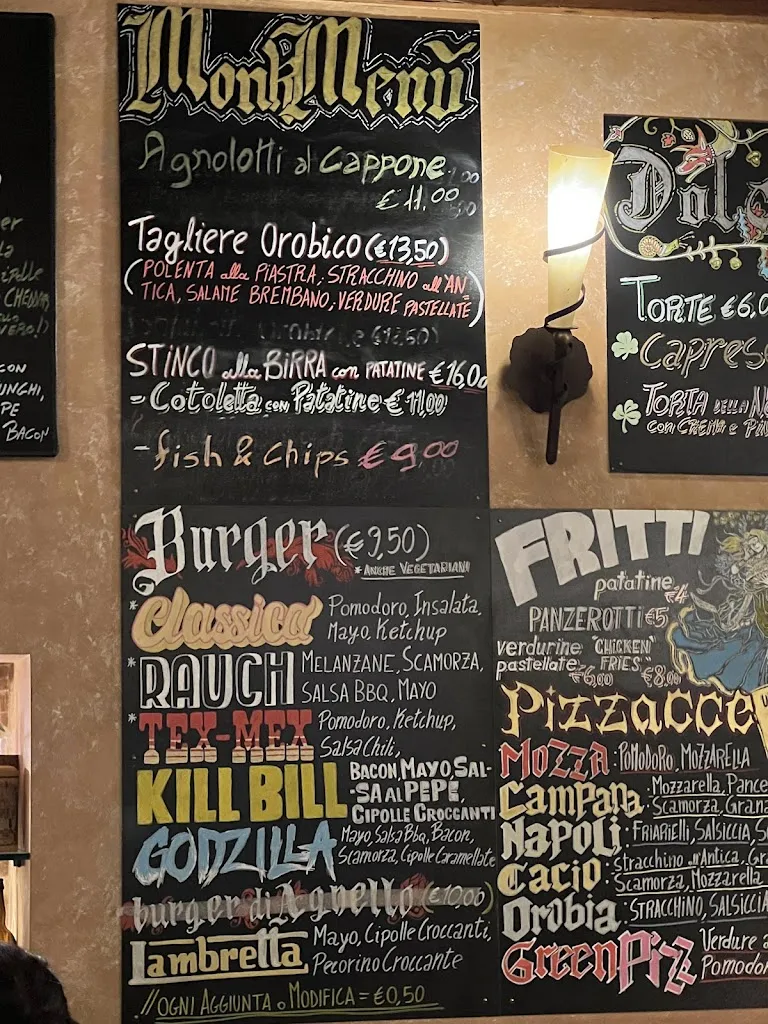 CHEDDAR
CON
BACON
Monk Menù
Agnolotti al Cappone
€ 11,00
Tagliere Orobico (€13,50)
(POLENTA alla PIASTRA, STRACCHINO all'AN
TICA, SALAME BREMBANO, VERDURE PASTELLATE)
STINCO alla BIRRA con PATATINE € 16,00
- Cotoletta con Patatine € 11,00
- fish & chips € 9,00
Burger (€9,50)
* ANCHE VEGETARIANI
* Classico Pomodoro, Insalata,
Mayo, Ketchup
* RAUCH MELANZANE, SCAMORZA,
SALSA BBQ, MAYO
* TEX-MEX Pomodoro, Ketchup,
Salsa Chili,
KILL BILL BACON, MAYO, SAL-
-SA AL PEPE,
CIPOLLE CROCCANTI
GODZILLA Mayo, Salsa Bbq, Bacon,
Scamorza, Cipolle Caramellate
burger di Agnello (€10,00)
Lambretta Mayo, Cipolle Croccanti,
Pecorino Croccante
//OGNI AGGIUNTA o MODIFICA = €0,50
Dol
TORTE €6,0
Caprese
TORTA DELLA N
CON CREMA e PI
FRITTI
patatine €4
PANZEROTTI €5
verdurine pastellate €6,00
"CHICKEN" FRIES" €8,00
Pizzacce
MOZZA: POMODORO, MOZZARELLA
Campana: Mozzarella, Pance
Scamorza, Grana
Napoli: FRIARIELLI, SALSICCIA, S
Cacio: stracchino all'Antica, Gra
Scamorza, Mozzarella
Orobia: STRACCHINO, SALSICCIA
GreenPizz Verdure a
Pomodor